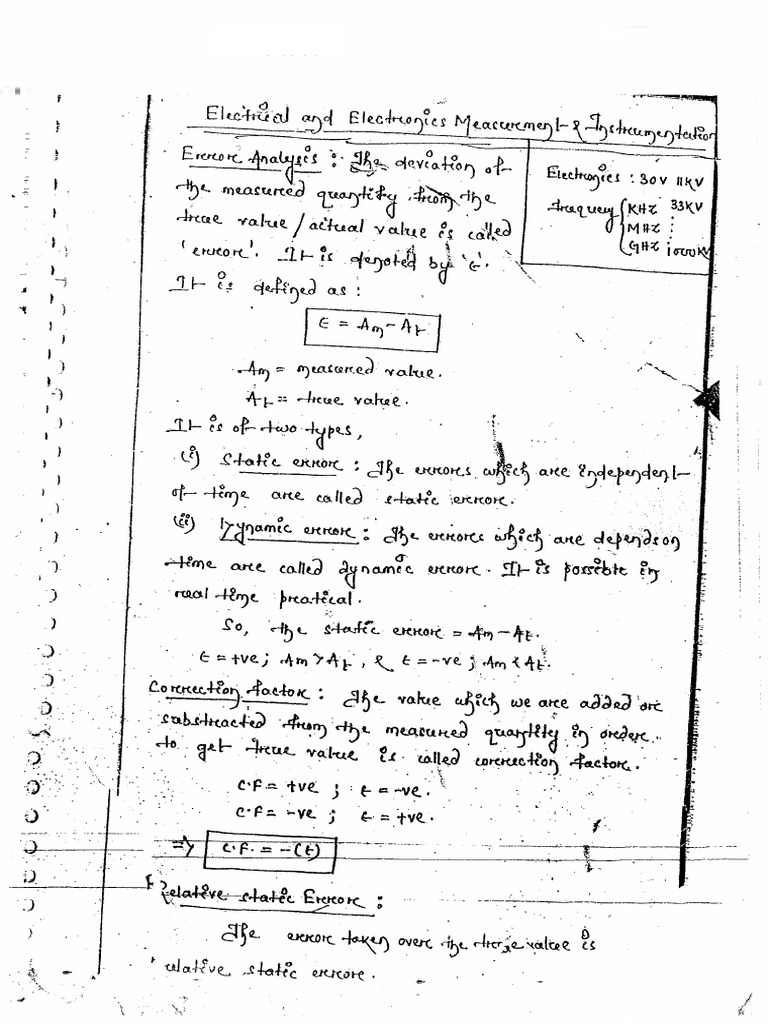 Electrical and Electronics Measurement & Instrumentation
Error Analysis : The deviation of
the measured quantity from the
true value / actual value is called
'error'. It is denoted by 'ε'.
It is defined as :
Electronics : 30V 11KV
Frequency { KHZ 33KV
MHZ :
GHZ 1000KV
ε = Am - At
Am = measured value.
At = true value.
It is of two types,
(i) Static error : The errors which are independent
of time are called static error.
(ii) Dynamic error : The errors which are depends on
time are called dynamic error. It is possible in
real time pratical.
So, the static error = Am - At.
ε = +ve ; Am > At , & ε = -ve ; Am < At.
Correction factor : The value which we are added or
substracted from the measured quantity in order
to get true value is called correction factor.
C.F = +ve ; ε = -ve.
C.F = -ve ; ε = +ve.
=> C.F. = -(ε)
Relative static Error :
The error taken over the true value is
relative static error.